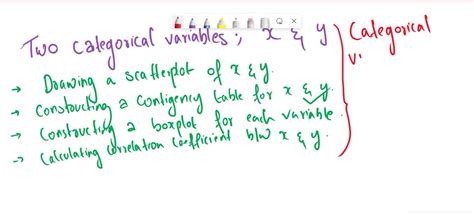 Two categorical variables; x & y
→ Drawing a scatterplot of x & y.
→ Constructing a contigency table for x & y.
→ Constructing a boxplot for each variable.
→ Calculating correlation coefficient b/w x & y.
Categorical
v